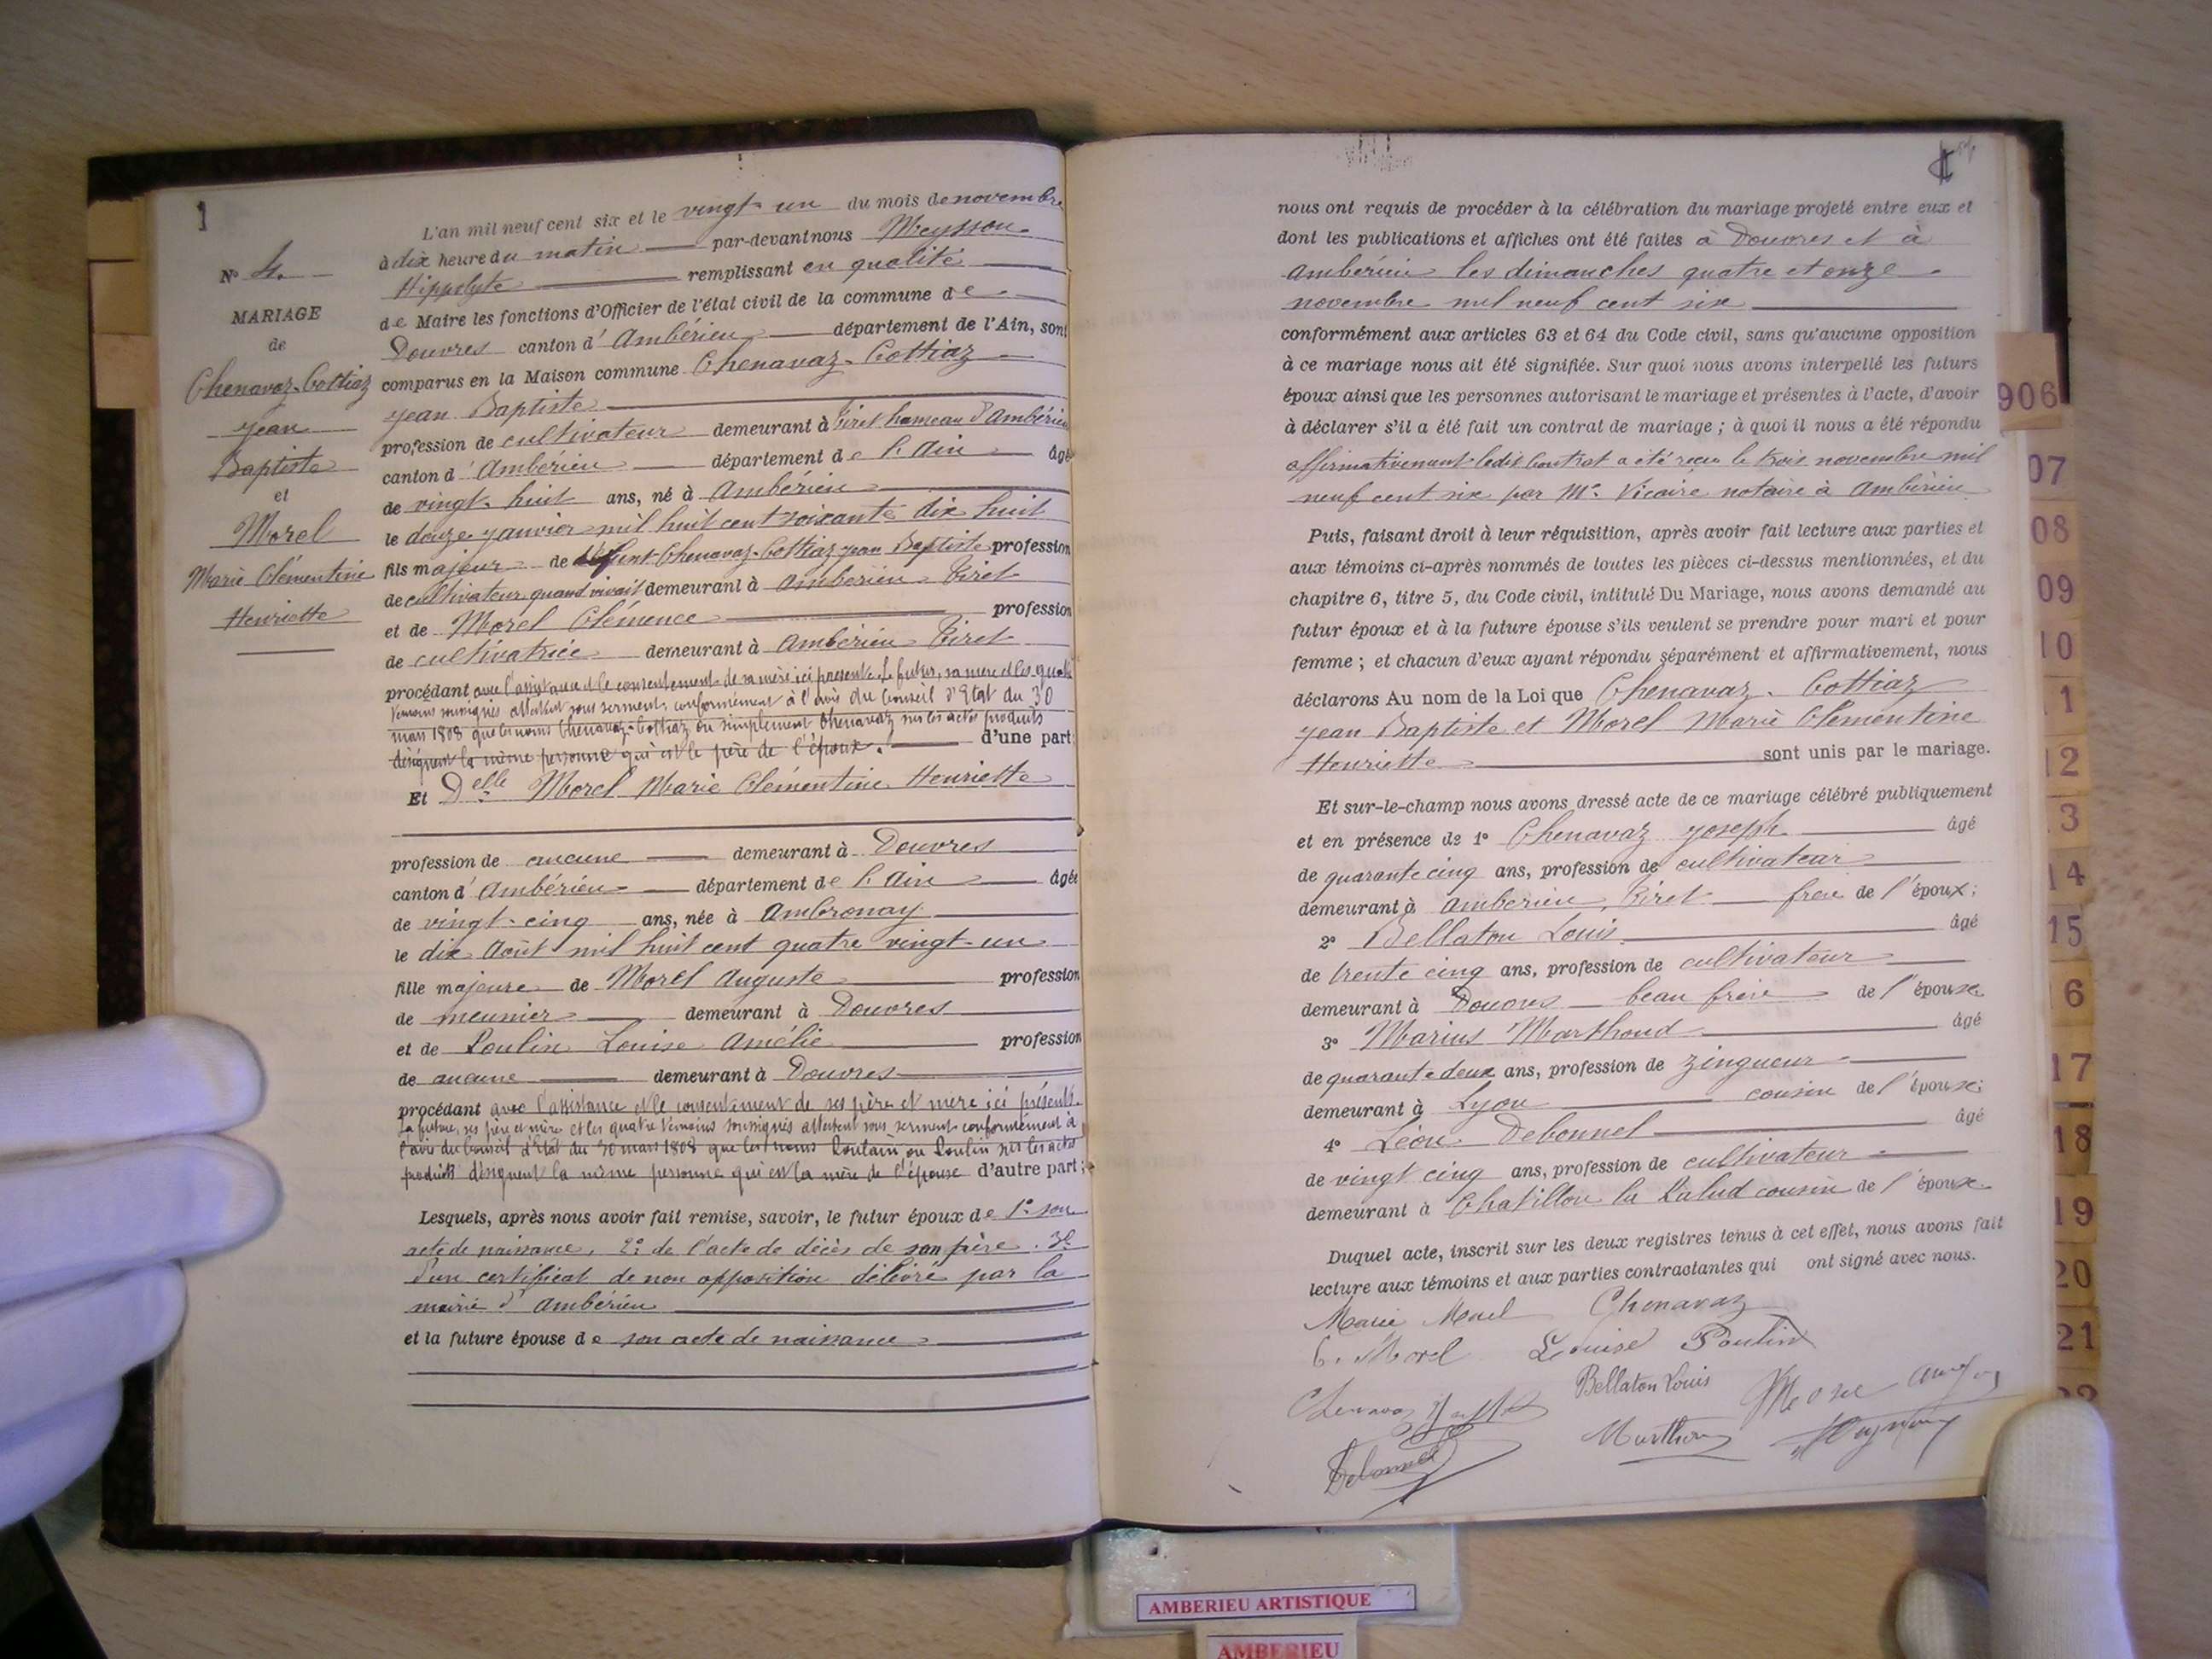 1
L'an mil neuf cent six et le vingt-un du mois de novembre
N° 4.
à dix heure du matin par-devant nous Meysson
Hippolyte remplissant en qualité
MARIAGE
de Maire les fonctions d'Officier de l'état civil de la commune de
de
Douvres canton d'Ambérieu département de l'Ain, sont
Chenavaz-Cottiaz
comparus en la Maison commune Chenavaz-Cottiaz
Jean
Jean Baptiste
profession de cultivateur demeurant à Tiret hameau d'Ambérieu
Baptiste
canton d'Ambérieu département de l'Ain âgé
et
de vingt-huit ans, né à Ambérieu
Morel
le douze janvier mil huit cent soixante dix huit
Marie Clémentine
fils majeur de défunt Chenavaz-Cottiaz Jean Baptiste profession
de cultivateur quand vivait demeurant à Ambérieu Tiret
Henriette
et de Morel Clémence profession
de cultivatrice demeurant à Ambérieu Tiret
procédant avec l'assistance et le consentement de sa mère ici présente. Le futur, sa mère et les quatre
témoins soussignés attestent sous serment, conformément à l'avis du Conseil d'Etat du 30
mars 1808 que les noms Chenavaz-Cottiaz ou simplement Chenavaz sur les actes produits
désignent la même personne qui est le père de l'époux. d'une part;
Et Delle Morel Marie Clémentine Henriette
profession de aucune demeurant à Douvres
canton d'Ambérieu département de l'Ain âgée
de vingt-cinq ans, née à Ambronay
le dix Août mil huit cent quatre vingt-un
fille majeure de Morel Auguste profession
de meunier demeurant à Douvres
et de Poulin Louise Amélie profession
de aucune demeurant à Douvres
procédant avec l'assistance et le consentement de ses père et mère ici présents.
La future, ses père et mère et les quatre témoins soussignés attestent sous serment conformément à
l'avis du Conseil d'Etat du 30 mars 1808 que les noms Poulain ou Poulin sur les actes
produits désignent la même personne qui est la mère de l'épouse d'autre part;
Lesquels, après nous avoir fait remise, savoir, le futur époux de 1° son
acte de naissance, 2° de l'acte de décès de son père. 3°
d'un certificat de non opposition délivré par la
mairie d'Ambérieu
et la future épouse de son acte de naissance
nous ont requis de procéder à la célébration du mariage projeté entre eux et
dont les publications et affiches ont été faites à Douvres et à
Ambérieu les dimanches quatre et onze
novembre mil neuf cent six
conformément aux articles 63 et 64 du Code civil, sans qu'aucune opposition
à ce mariage nous ait été signifiée. Sur quoi nous avons interpellé les futurs
époux ainsi que les personnes autorisant le mariage et présentes à l'acte, d'avoir
à déclarer s'il a été fait un contrat de mariage ; à quoi il nous a été répondu
affirmativement ledit Contrat a été reçu le trois novembre mil
neuf cent six par Me Vicaire notaire à Ambérieu
Puis, faisant droit à leur réquisition, après avoir fait lecture aux parties et
aux témoins ci-après nommés de toutes les pièces ci-dessus mentionnées, et du
chapitre 6, titre 5, du Code civil, intitulé Du Mariage, nous avons demandé au
futur époux et à la future épouse s'ils veulent se prendre pour mari et pour
femme ; et chacun d'eux ayant répondu séparément et affirmativement, nous
déclarons Au nom de la Loi que Chenavaz-Cottiaz
Jean Baptiste et Morel Marie Clémentine
Henriette sont unis par le mariage.
Et sur-le-champ nous avons dressé acte de ce mariage célébré publiquement
et en présence de 1° Chenavaz Joseph âgé
de quarante cinq ans, profession de cultivateur
demeurant à Ambérieu, Tiret frère de l'époux;
2° Bellaton Louis âgé
de trente cinq ans, profession de cultivateur
demeurant à Douvres beau frère de l'épouse
3° Marius Marthoud âgé
de quarante deux ans, profession de zingueur
demeurant à Lyon cousin de l'épouse;
4° Léon Debonnel âgé
de vingt cinq ans, profession de cultivateur
demeurant à Chatillon la Palud cousin de l'épouse
Duquel acte, inscrit sur les deux registres tenus à cet effet, nous avons fait
lecture aux témoins et aux parties contractantes qui ont signé avec nous.
Marie Morel Chenavaz
C. Morel Louise Poulin
Bellaton Louis
Debonnel
906
07
08
09
10
11
12
13
14
15
16
17
18
19
20
21
22
AMBERIEU ARTISTIQUE
AMBERIEU